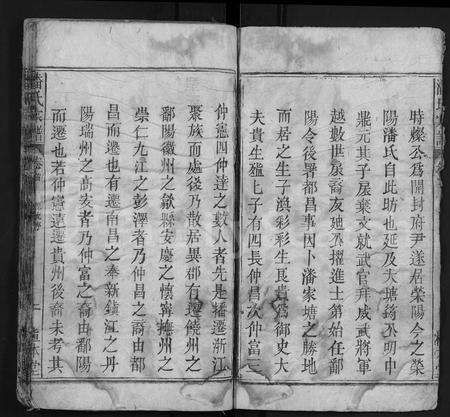 時燦公爲開封府尹遂居滎陽今之滎
陽潘氏自此昉也延及大塘
鼎元其子辰棄文就武官拜威武將軍
越數世辰裔友處擢進士第始任鄱
陽令後署都昌事因卜潘家塘之勝地
而居之生子澳彩彩生長貴爲御史大
夫貴生 上子有四長仲昌次仲富三
仲憲四仲達之數人者先是播遷浙江
聚族而處後乃散居異郡有遷饒州之
鄱陽徽州之歙縣安慶之懷寧撫州之
崇仁九江之彭澤者乃仲昌之裔由都
昌而遷也有遷南昌之奉新鎮江之丹
陽瑞州之高安者乃仲富之裔由鄱陽
而遷也若仲憲遠遷貴州後裔未考其
潘氏宗譜